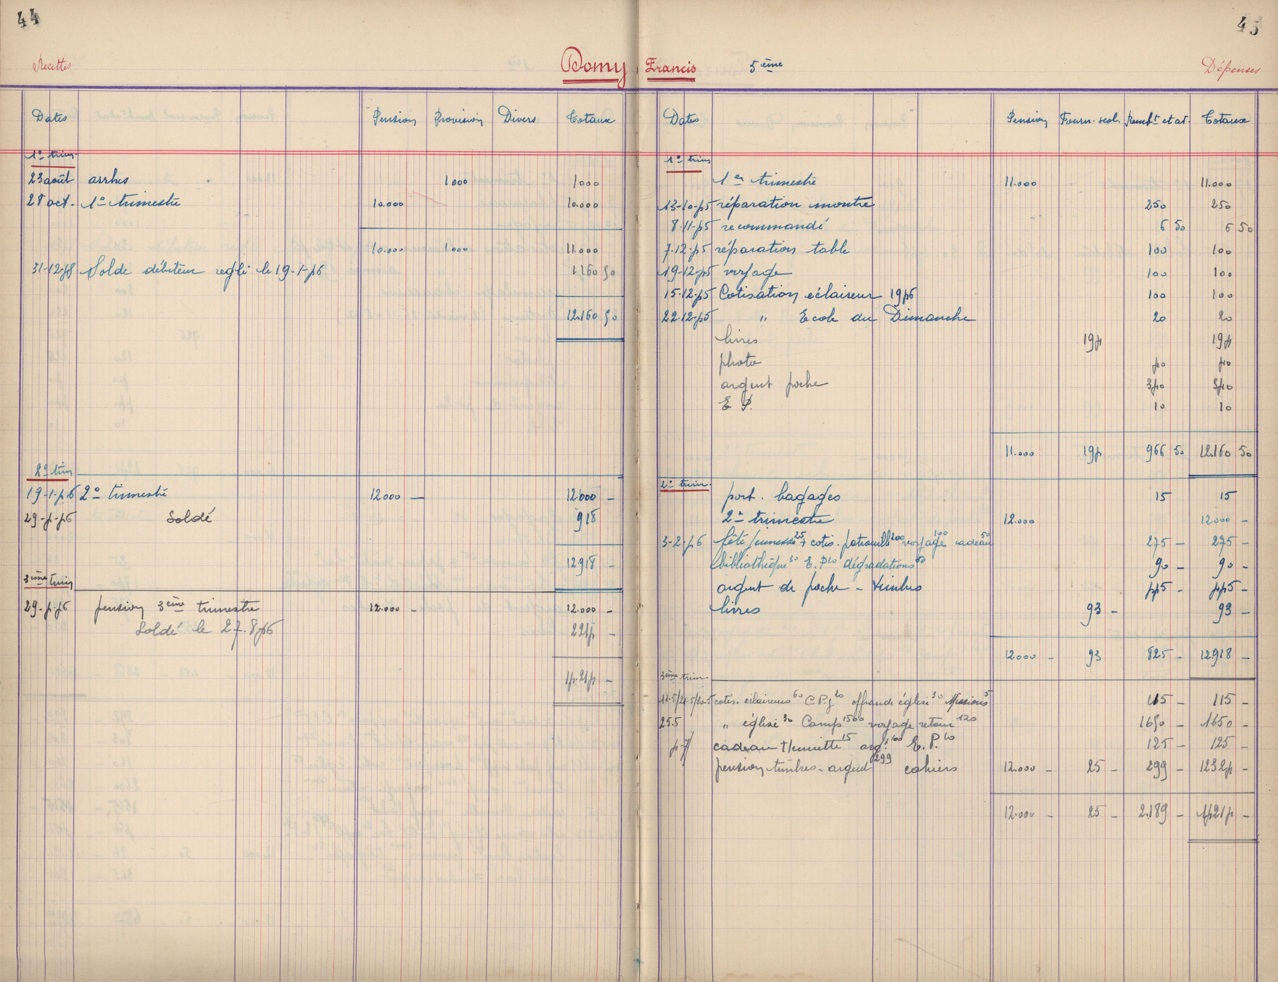 44
45
Recettes
Domy Francis 5ème
Dépenses
Dates Pension Provision Divers Totaux
1er trim.
23 août arrhes 1000 1000
28 oct. 1er trimestre 10.000 10.000
10.000 1000 11.000
31-12-45 Solde débiteur réglé le 19-1-46 1160 50
12.160 50
2e trim
19-1-46 2e trimestre 12000 — 12.000 —
29-4-46 Soldé 918
12918 —
3ème trim
29-4-46 pension 3ème trimestre 12.000 — 12.000 —
Soldé le 27.8.46 2214 —
14.214 —
Dates Pension Fourn. scol. Totaux
1er trim
1er trimestre 11.000 11.000
13-10-45 réparation montre 250 250
8-11-45 recommandé 6 50 6 50
7-12-45 réparation table 100 100
19-12-45 voyage 100 100
15-12-45 Cotisation éclaireur 1946 100 100
22-12-45 " Ecole du Dimanche 20 20
livres 194 194
photo 40 40
argent poche 340 340
E P. 10 10
11.000 194 966 50 12.160 50
2e trim.
port. bagages 15 15
2e trimestre 12.000 12000 —
3-2-46 fête jeunesse 25 cotis. patrouille 100 voyage 100 cadeau 50 275 — 275 —
bibliothèque E.P. 10 dégradations 90 — 90 —
argent de poche - timbres 445 — 445 —
livres 93 — 93 —
12000 — 93 825 — 12918 —
3ème trim.
cotis. éclaireurs 60 offrande église Missions 5 115 — 115 —
25.5 " église 30 Camp 1500 voyage retour 120 1650 — 1650 —
4-7/ cadeau Henriette 15 arg. 100 E.P. 10 125 — 125 —
pension - timbres - argent 299 cahiers 12.000 — 25 — 299 — 12324 —
12.000 — 25 — 2.189 — 14214 —